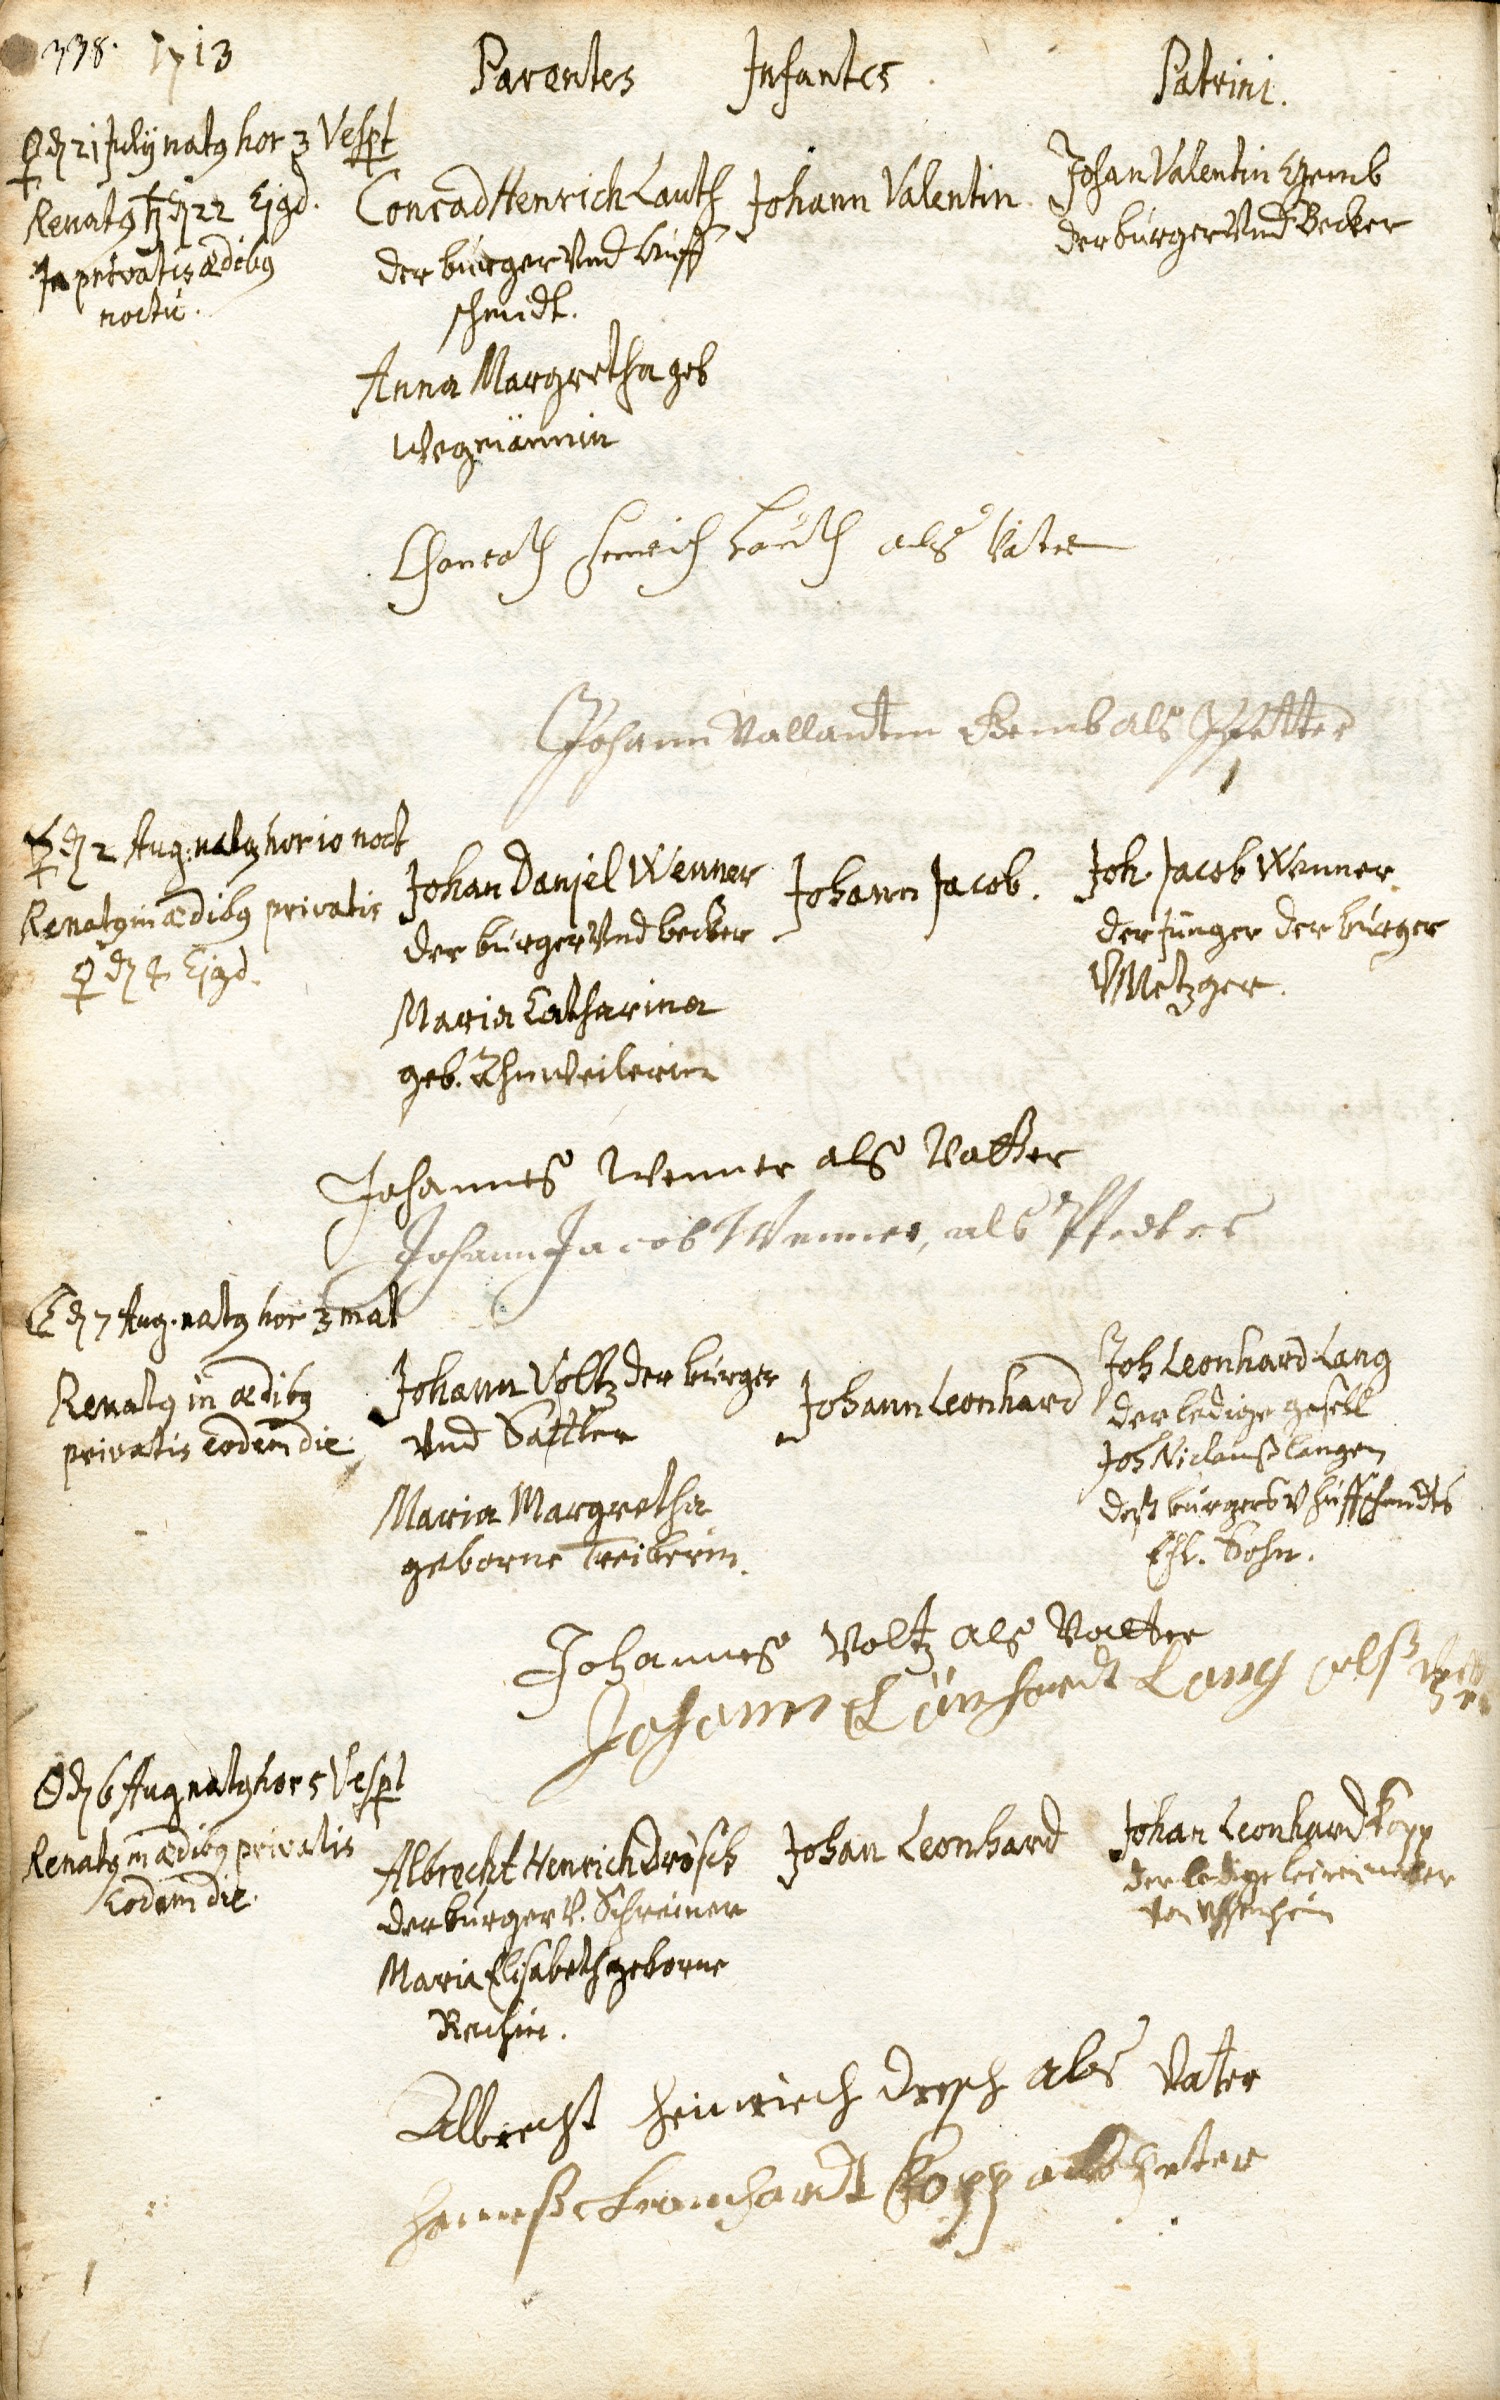 338. 1713
Parentes Infantes Patrini.
♀ d 21 Julij natg hor 3 Vespt
Renatg ♄ d 22 Ejgd.
In privatis ædibg
noctu.
Conrad Henrich Lauth
der bürger Vnd huff
schmidt.
Anna Margretha geb
Wegmännin
Johann Valentin
Johan Valentin Gemb
der bürger Vnd Becker
Chonrath Henrich Lauth als Vater
Johann Vallantin Gemb als Pfetter
d 2 Aug. natg hor 10 noct
Renatg in ædibg privatis
♀ d 4 Ejgd.
Johan Daniel Wenner
der bürger Vnd becker
Maria Catharina
geb.
Johann Jacob.
Joh. Jacob Wenner
der Jünger der bürger
V Metzger.
Johannes Wenner als Vatter
Johann Jacob Wenner, als Pfetter
d 7 Aug. natg hor 3 mat
Renatg in ædibg
privatis eodem die
Johann Voltz der bürger
vnd Sattler
Maria Margretha
geborne Treiberin.
Johann Leonhard
Joh Leonhard Lang
der ledige gesell
Joh Niclauß langen
deß bürgers V huffschmidts
Ehl. Sohn.
Johannes Voltz als Vatter
Johann Lönhardt Lang alß
d 6 Aug natg hor 5 Vespt
Renatg in ædibg privatis
Eodem die
Albrecht Henrich Drösch
der bürger V. Schreiner
Maria Elisabeth geborne
Johan Leonhard
Johan Leonhard Kopp
der ledige
von Vffenheim
Albrecht Heinrich Dresch als Vater
Hanneß Leonhardt Kopp als Peter